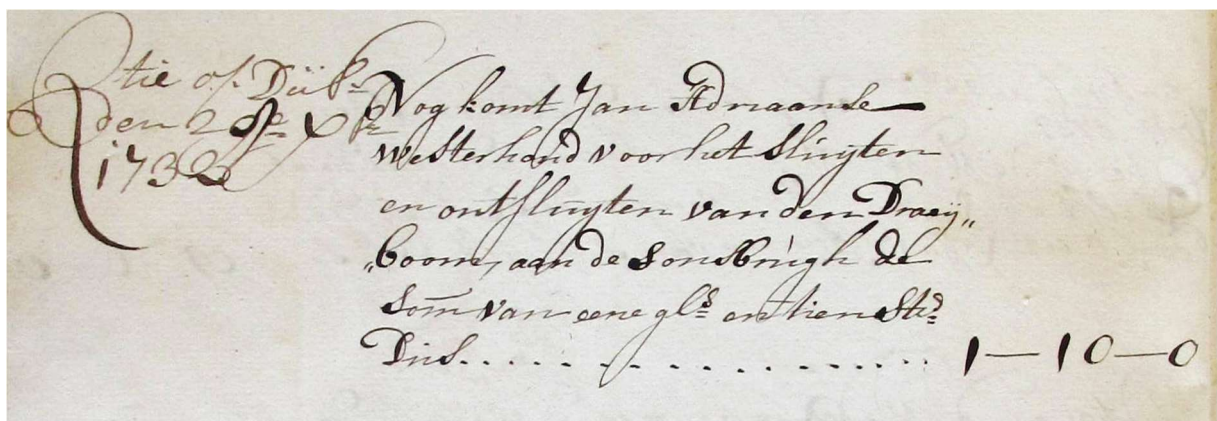 Qtie of Duk:
den 2
1732
Nog komt Jan Adriaanse
Westerhand voor het Sluyten
en ontsluyten van den Draey„
„boom, aan de Sonsbrugh de
Som van eene gls en tien sts
Dus..................1—10—0